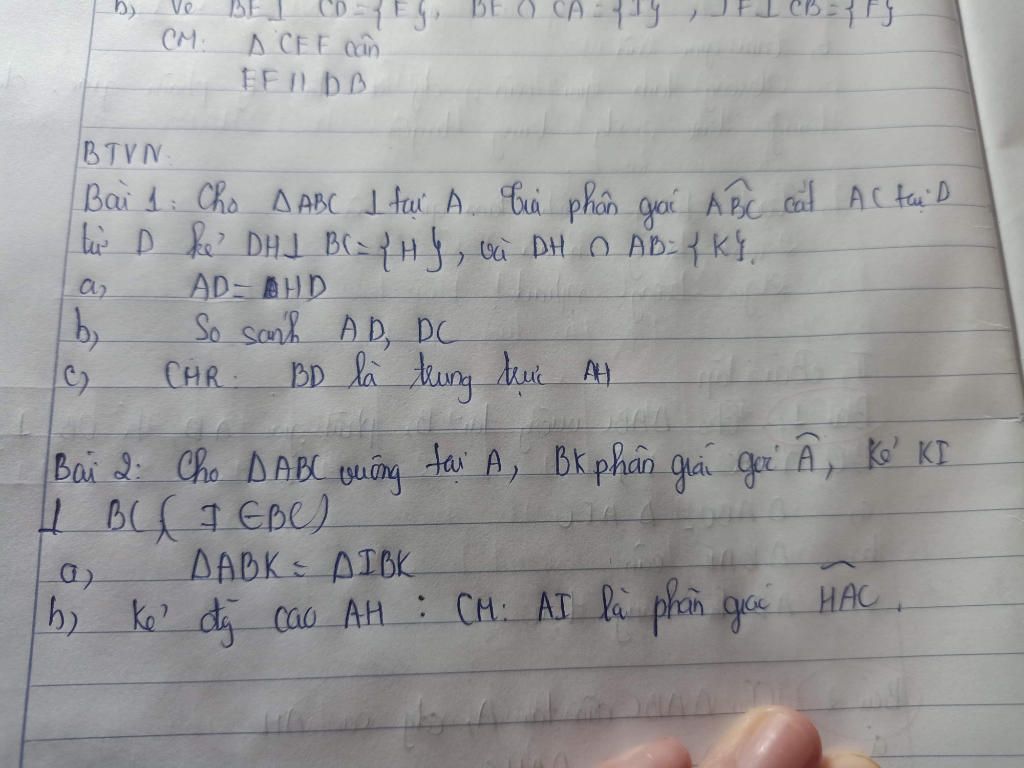 b) Vẽ BE ⊥ CD = {E}, BE ∩ CA = {I}, IF ⊥ CB = {F}
CM: Δ CEF cân
EF // DB
BTVN:
Bài 1: Cho ΔABC ⊥ tại A. Tia phân giác ABC cắt AC tại D
từ D kẻ DH ⊥ BC = {H}, và DH ∩ AB = {K}.
a, AD = HD
b) So sánh AD, DC
c) CMR: BD là trung trực AH
Bài 2: Cho ΔABC vuông tại A, BK phân giác góc A, Kẻ KI
⊥ BC (I ∈ BC)
a) ΔABK = ΔIBK
b) Kẻ đg cao AH : CM: AI là phân giác HAC.